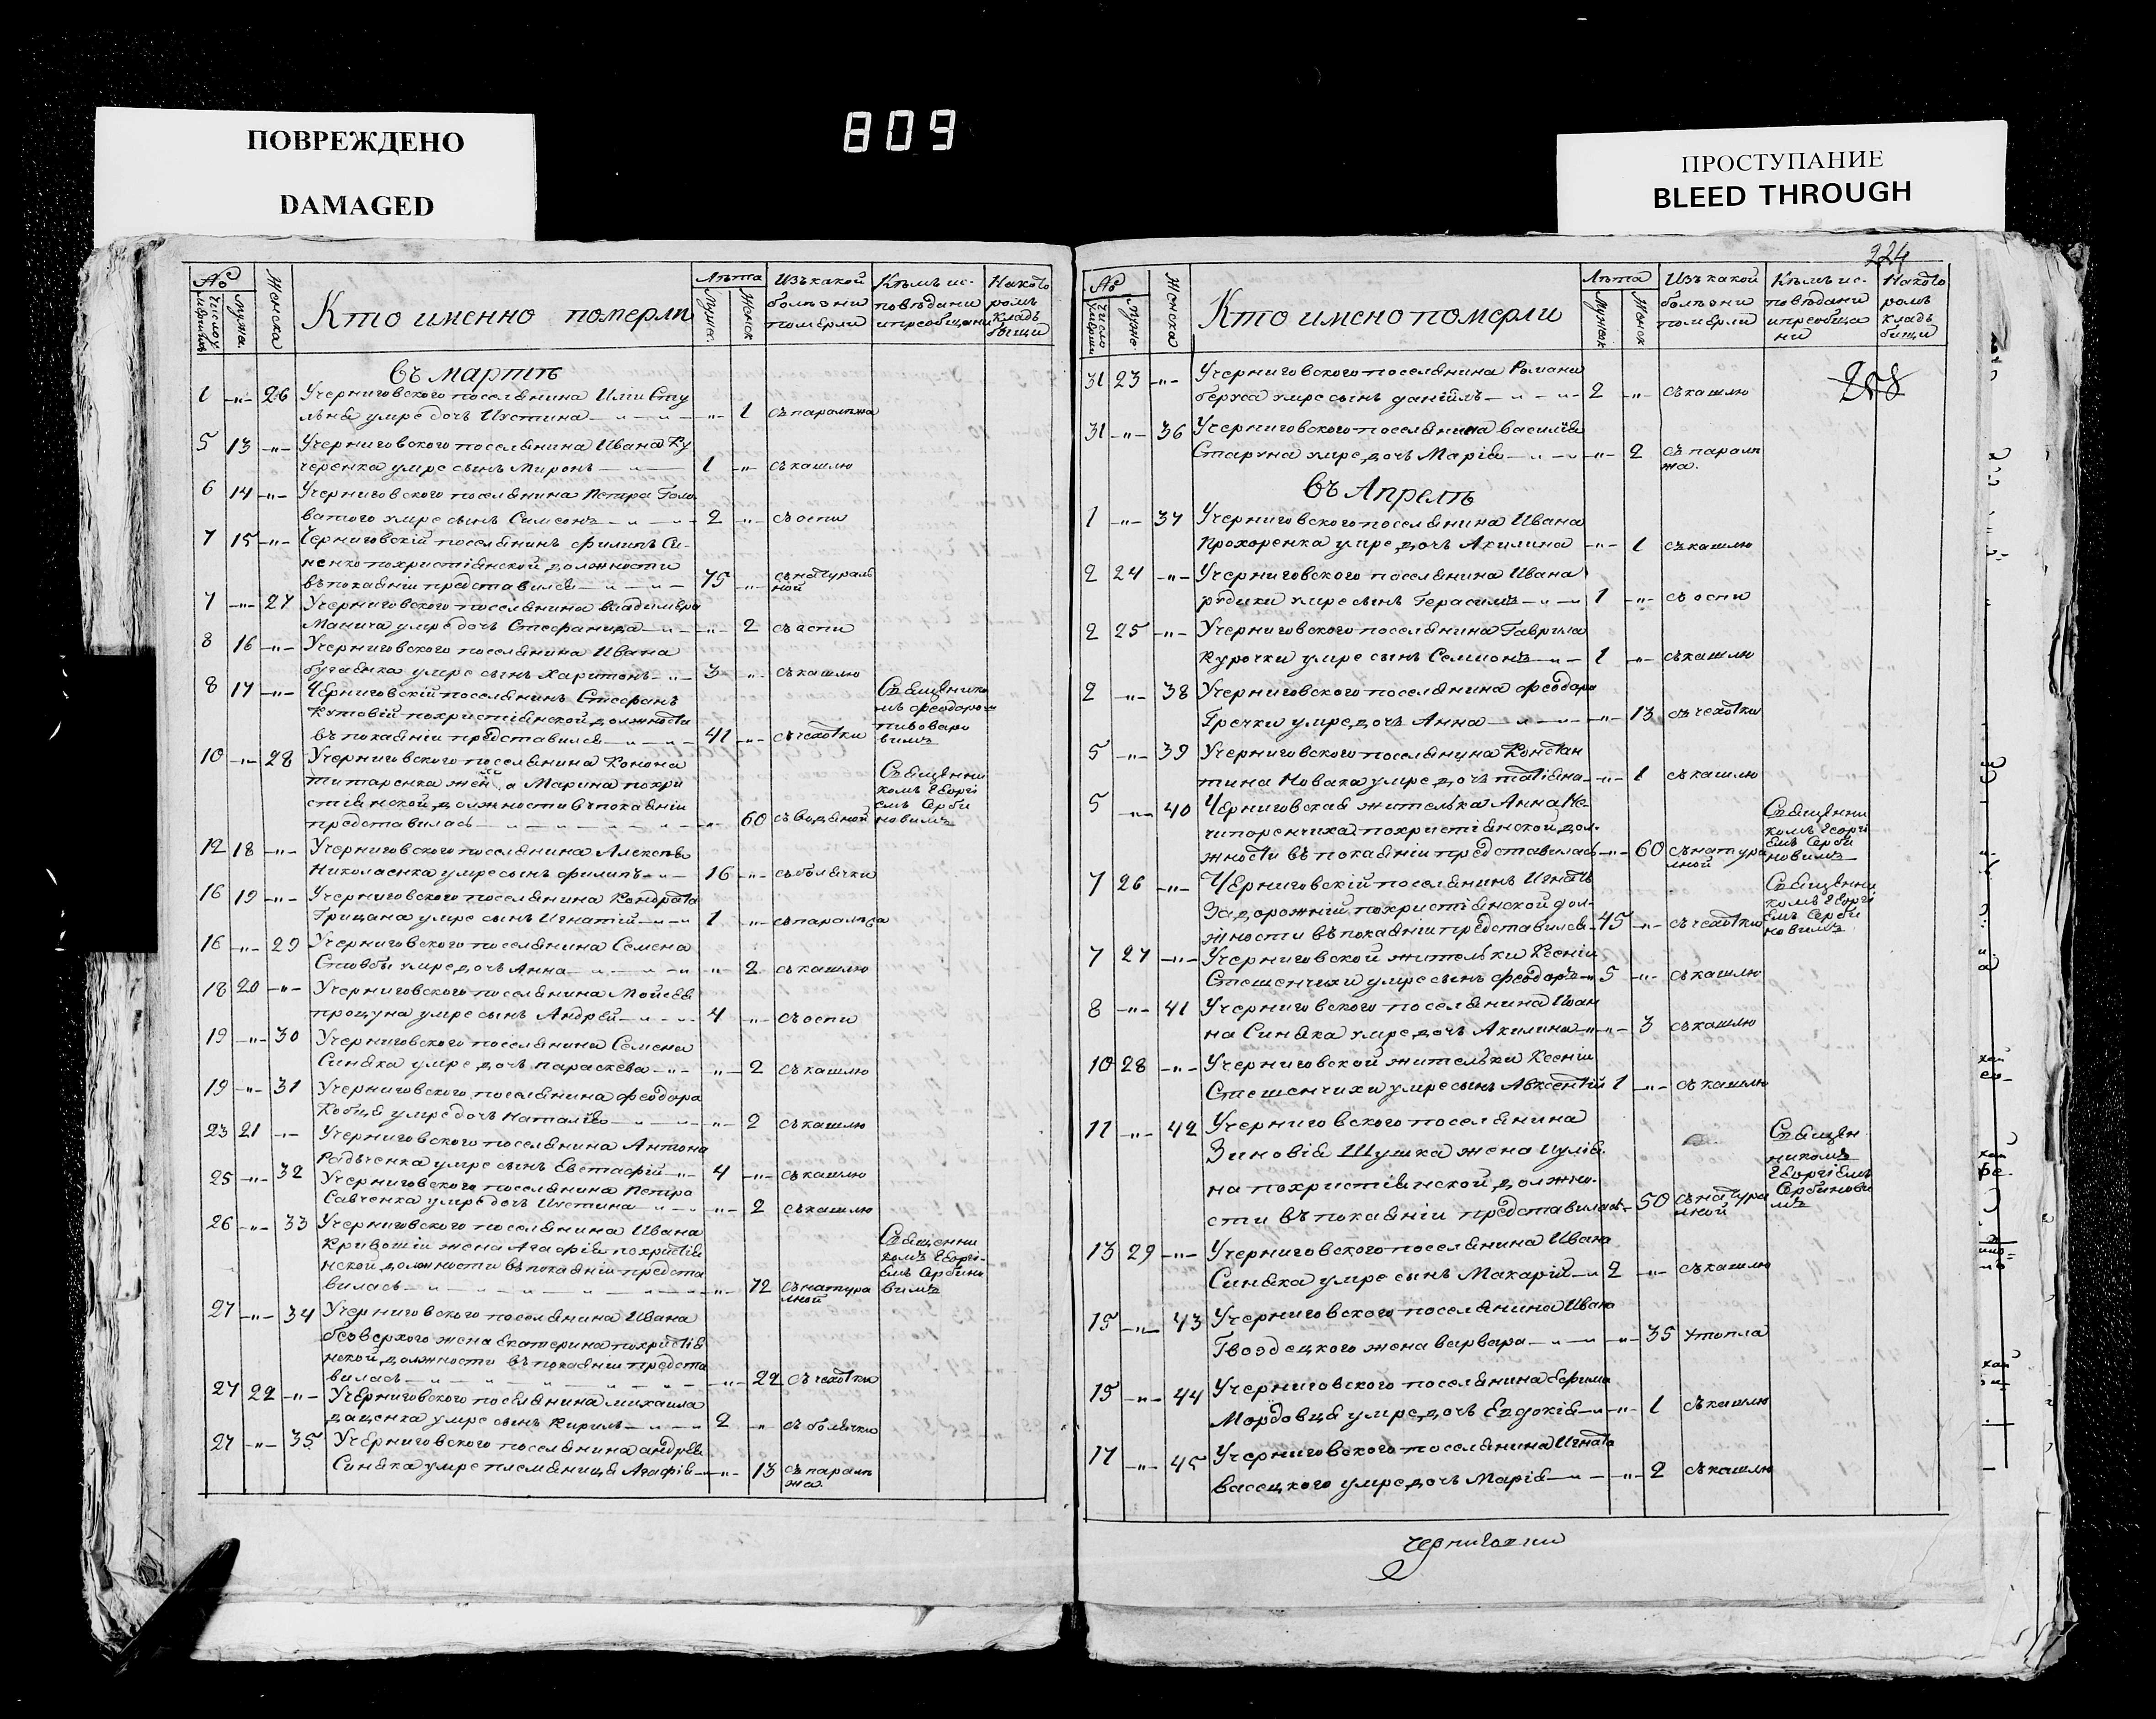 ПОВРЕЖДЕНО
DAMAGED
809
ПРОСТУПАНИЕ
BLEED THROUGH
№ Женска Кто именно померли Лѣта Изъ какой болѣзни померли Кѣмъ исповѣдани и преобщани На кото ромъ кладь бищи
Число умершихъ Мужес. Мужес. Женск
Въ мартѣ
1 -„- 26 Учерниговского поселянина Иліи Сту
льня умре дочь Иустина -„- 1 съ паралѣжа
5 13 -„- Учерниговского поселянина Ивана Ку
черенка умре сынъ Миронъ 1 -„- съ кашлю
6 14 -„- Учерниговского поселянина Петра Голо
ватого умре сынъ Симеонъ 2 -„- съ оспи
7 15 -„- Черниговскій поселянинъ филипъ Си-
ненко похристіянской должности
въ покаяніи представился 75 -„- съ натураль
ной
7 -„- 27 Учерниговского поселянина владимѣра
Манича умре дочь Стефанида -„- 2 съ оспи
8 16 -„- Учерниговского поселянина Ивана
бугаенка умре сынъ Харитонъ 3 -„- съ кашлю
8 17 -„- Черниговскій поселянинъ Стефанъ
Кутовій похристіянской должности
въ покаяніи представился 41 -„- съ чехотки
Священико
мъ феодоро
пивоваро
вимъ
10 -„- 28 Учерниговского поселянина Конона
титаренка жена Марина похри
стіянской должности въ покаяніи
представилась -„- 60 съ водяной
Священни
комъ Георгі
емъ Серби
новимъ
12 18 -„- Учерниговского поселянина Алексѣя
Николаенка умре сынъ филипъ 16 -„- съ болячки
16 19 -„- Учерниговского поселянина Кондрата
Грицана умре сынъ Игнатій 1 -„- съ паралѣжа
16 -„- 29 Учерниговского поселянина Семена
Стовбы умре дочь Анна -„- 2 съ кашлю
18 20 -„- Учерниговского поселянина Мойсея
процуна умре сынъ Андрей 4 -„- съ оспи
19 -„- 30 Учерниговского поселянина Семена
Синяка умре дочь параскева -„- 2 съ кашлю
19 -„- 31 Учерниговского поселянина феодора
Кобця умре дочь Наталія -„- 2 съ кашлю
23 21 -„- Учерниговского поселянина Антона
Радченка умре сынъ Евстафій 4 -„- съ кашлю
25 -„- 32 Учерниговского поселянина Петра
Савченка умре дочь Иустина -„- 2 съ кашлю
26 -„- 33 Учерниговского поселянина Ивана
Кривошіи жена Агафія похристія
нской должности въ покаяніи предста
вилась -„- 72 съ натура
лной
Священни
комъ Георгі-
емъ Сербино
вимъ
27 -„- 34 Учерниговского поселянина Ивана
безверхого жена Екатерина похристія
нской должности въ покаяніи предста
вилась -„- 22 съ чехотки
27 22 -„- Учерниговского поселянина михаила
даценка умре сынъ Кирилъ 2 -„- съ болячки
27 -„- 35 Учерниговского поселянина андрея
Синяка умре племяница Агафія -„- 13 съ паралѣ
жа.
224
№ Женска Кто имено померли Лѣта Изъ какой болѣзни померли Кѣмъ исповѣдани и преобща ни На кото ромъ кладь бищи
Число умерши Мужес Мужеск Женск
208
31 23 -„- Учерниговского поселянина Романа
беруса умре сынъ даніилъ 2 -„- съ кашлю
31 -„- 36 Учерниговского поселянина василія
Старуна умре дочь Марія -„- 2 съ паралѣ
жа.
Въ Апрелѣ
1 -„- 37 Учерниговского поселянина Ивана
Прохоренка умре дочь Акилина -„- 1 съ кашлю
2 24 -„- Учерниговского поселянина Ивана
рудики умре сынъ Герасимъ 1 -„- съ оспи
2 25 -„- Учерниговского поселянина Гаврила
Курочки умре сынъ Семионъ 1 -„- съ кашлю
2 -„- 38 Учерниговского поселянина феодора
Гречки умре дочь Анна -„- 13 съ чехотки
5 -„- 39 Учерниговского поселянина Констан
тина Новака умре дочь татіяна -„- 1 съ кашлю
5 -„- 40 Черниговская жителька Анна Не-
чипоренчиха похристіянской дол-
жности въ покаяніи представилась -„- 60 съ натура
лной
Священни
комъ Георгі
емъ Серби
новимъ
7 26 -„- Черниговскій поселянинъ Игнатъ
Задорожній похристіянской дол-
жности въ покаяніи представился 45 -„- съ чехотки
Священни
комъ Георгі
емъ Серби
новимъ
7 27 -„- Учерниговской жительки Ксеніи
Стешенчихи умре сынъ феодоръ 5 -„- съ кашлю
8 -„- 41 Учерниговского поселянина Иван
на Синяка умре дочь Акилина -„- 3 съ кашлю
10 28 -„- Учерниговской жительки Ксеніи
Стешенчихи умре сынъ Авксентій 1 -„- съ кашлю
11 -„- 42 Учерниговского поселянина
Зиновія Шушка жена Иулія.
на похристіянской должно-
сти въ покаяніи представилась 50 съ натура
лной
Священ
никомъ
Георгіемъ
Сербинови
мъ
13 29 -„- Учерниговского поселянина Ивана
Синяка умре сынъ Макарій 2 -„- съ кашлю
15 -„- 43 Учерниговского поселянина Ивана
Гвоздецкого жена варвара -„- 35 утопла
15 -„- 44 Учерниговского поселянина Ефима
Мордовця умре дочь Евдокія -„- 1 съ кашлю
17 -„- 45 Учерниговского поселянина Игната
васецкого умре дочь Марія -„- 2 съ кашлю